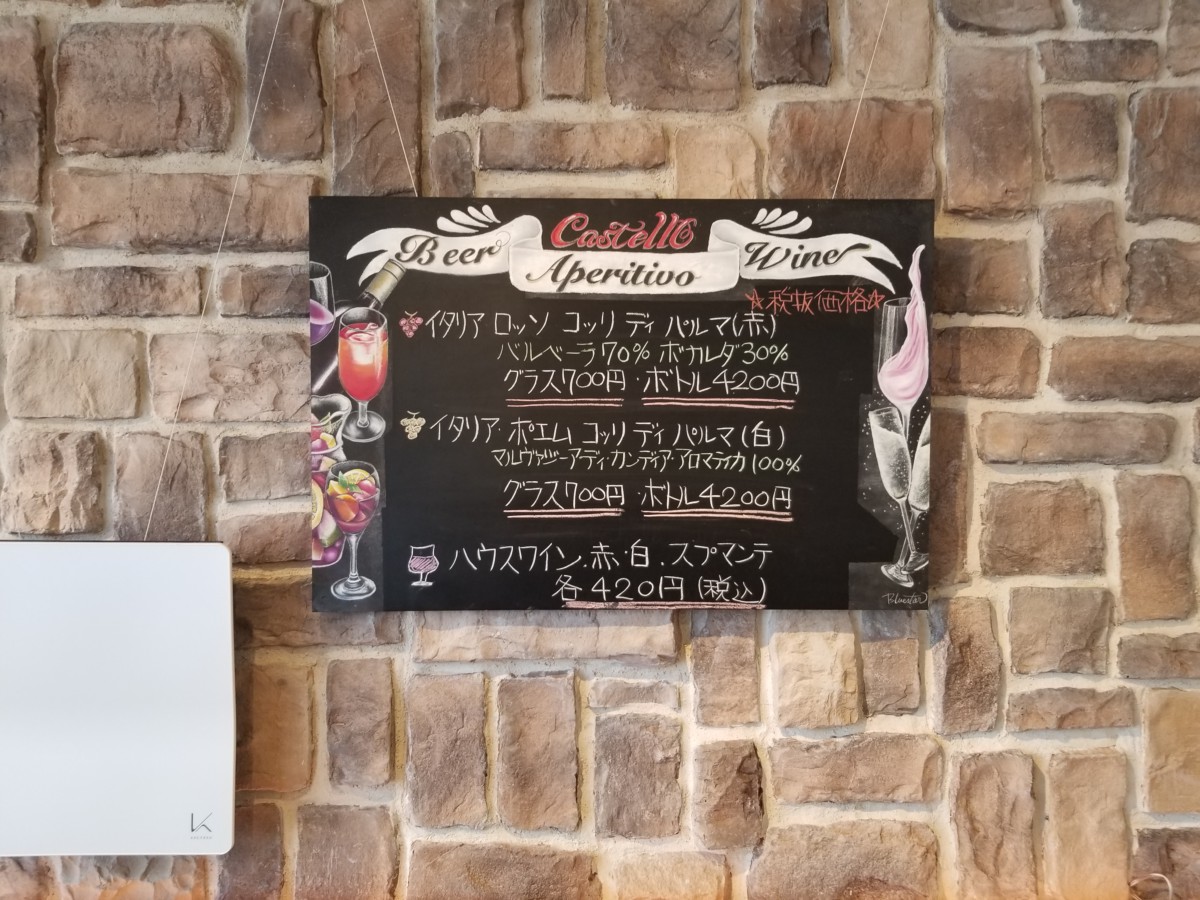 Castello
Beer Aperitivo Wine
☆税抜価格☆
イタリア ロッソ コッリ ディ パルマ(赤)
バルベーラ70% ボカルダ30%
グラス700円・ボトル4200円
イタリア・ポエム コッリ ディ パルマ(白)
マルヴァジーアディ・カンディア・アロマティカ100%
グラス700円・ボトル4200円
ハウスワイン.赤.白.スプマンテ
各420円(税込)
Bluestar